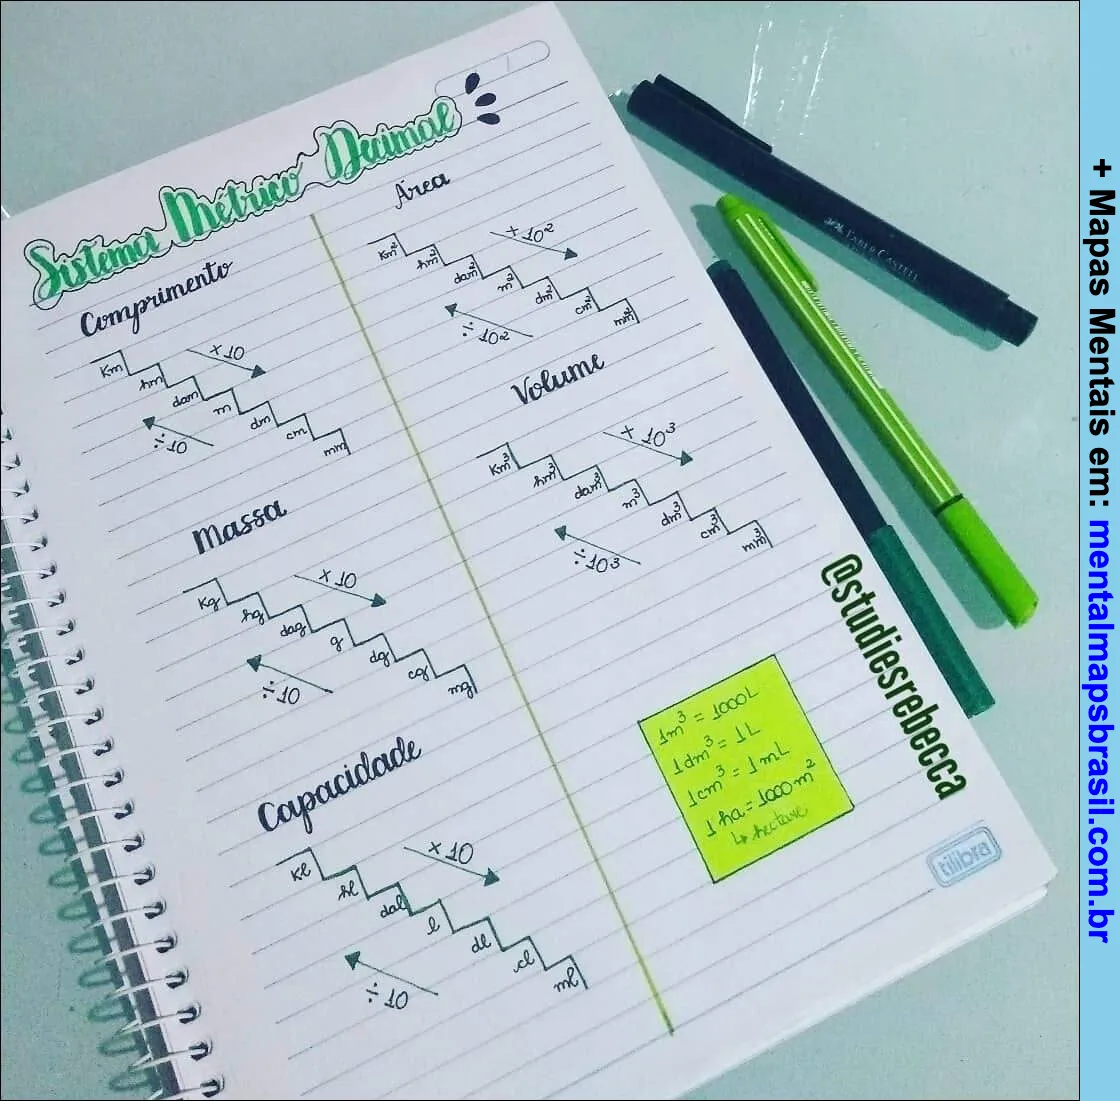 Sistema Métrico Decimal
Comprimento
Km
hm
dam
m
dm
cm
mm
× 10
÷ 10
Massa
Kg
hg
dag
g
dg
cg
mg
× 10
÷ 10
Capacidade
Kl
hl
dal
l
dl
cl
ml
× 10
÷ 10
Área
Km²
hm²
dam²
m²
dm²
cm²
mm²
× 10²
÷ 10²
Volume
Km³
hm³
dam³
m³
dm³
cm³
mm³
× 10³
÷ 10³
1m³ = 1000L
1dm³ = 1L
1cm³ = 1mL
1 ha = 1000m²
↳ hectare
@studiesrebecca
tilibra
FABER CASTELL
+ Mapas Mentais em: mentalmapsbrasil.com.br